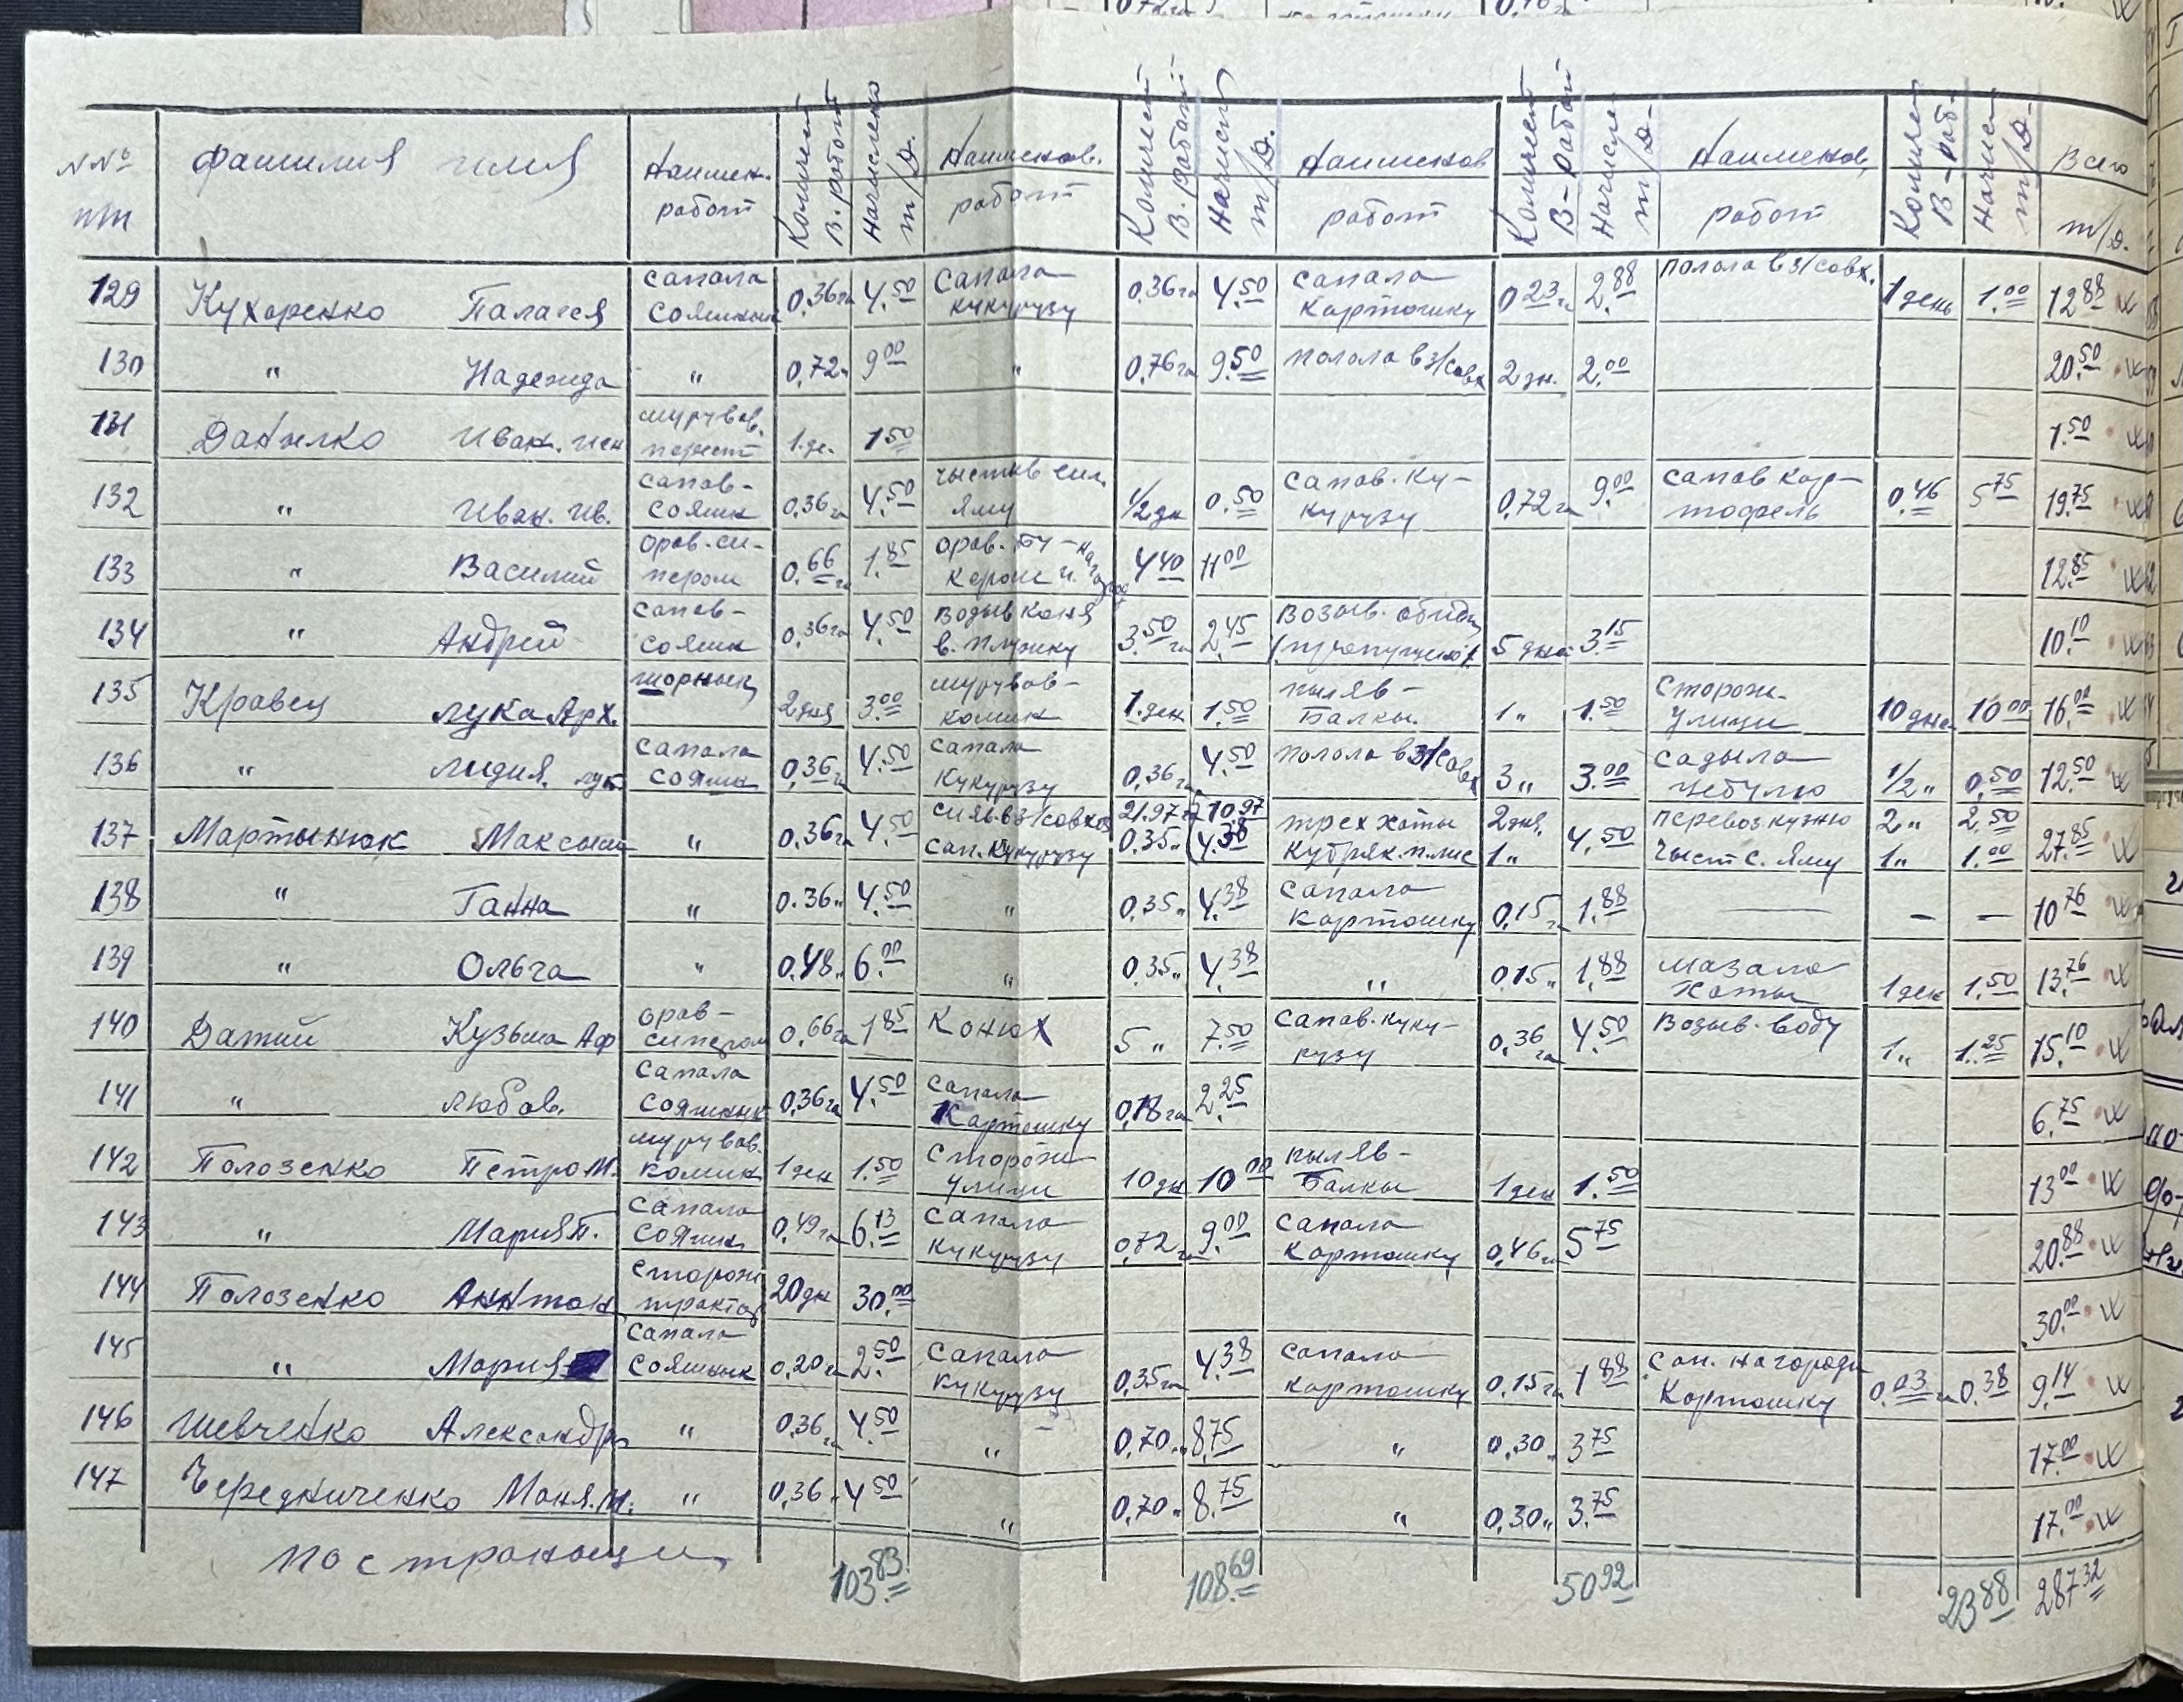 NN° Фамилия имя Наимен. Количест Начислено Наименов. Количест Начисл Наименов Количест Начисле Наименов. Количест Начисле Всего
п/п работ В. работ т/д. работ В. работ т/д. работ В-работ т/д- работ В-раб- т/д- т/д.
129 Кухаренко Палагея сапала сояшнык 0,36 га 4.50 сапала кукурузу 0.36 га 4.50 сапала картошку 0.23 га 2.88 полола в з/совх. 1 день 1.00 12.88
130 " Надежда " 0,72 " 9.00 " 0,76 га 9.50 полола в з/совх 2 дн. 2.00 20.50
131 Данылко Иван. шурував. 1.де. 1.50 1.50
132 " Иван. Ив. сапав- сояшн 0.36 га 4.50 чыстыв сил. яму 1/2 дн 0.50 сапав. ку- курузу 0,72 га 9.00 сапав кар- тофель 0,46 5.75 19.75
133 " Василий орав. 0.66 га 1.85 орав. 4.40 11.00 12.85
134 " Андрей сапав- сояшн 0.36 га 4.50 водыв коня в. плужку 3.50 га 2.45 возыв. 5 дня 3.15 10.10
135 Кравец Лука Арх. 2 дня 3.00 шурував- комин 1.ден 1.50 пыляв- Балкы. 1 " 1.50 сторож. улици 10 дня 10.00 16.00
136 " Лидия. сапала сояшн 0,36 га 4.50 сапала кукурузу 0.36 га 4.50 полола в з/совх 3 " 3.00 садыла цебулю 1/2 " 0.50 12.50
137 Мартынюк Максым " 0.36 га 4.50 сияв. в з/совхоз 21.97 га 10.97 трех хаты 2 дня. 4.50 перевоз кузню 2 " 2.50 27.85
сап. кукурузу 0.35 " 4.38 1 " чыст с. яму 1 " 1.00
138 " Ганна " 0.36 " 4.50 " 0,35 " 4.38 сапала картошку 0,15 га 1.88 — — — 10.76
139 " Ольга " 0.48 " 6.00 " 0.35 " 4.38 " 0.15 " 1.88 мазала хаты 1 ден 1.50 13.76
140 Датий Кузьма Аф орав- 0,66 га 1.85 Конюх 5 " 7.50 сапав. куку- рузу 0,36 га 4.50 возыв. воду 1 " 1.25 15.10
141 " Любов. сапала сояшнык 0.36 га 4.50 сапала картошку 0,18 га 2.25 6.75
142 Полозенко Петро М. шурував. комин 1 ден 1.50 сторожи улици 10 дн 10.00 пыляв- Балкы 1 ден 1.50 13.00
143 " Мария П. сапала сояшн 0,49 га 6.13 сапала кукурузу 0,72 га 9.00 сапала картошку 0,46 га 5.75 20.88
144 Полозенко Антон сторож трактор 20 дн 30.00 30.00
145 " Мария сапала сояшнык 0,20 га 2.50 сапала кукурузу 0,35 га 4.38 сапала картошку 0,15 га 1.88 сап. на городи картошку 0.03 га 0.38 9.14
146 Шевченко Александр " 0,36 га 4.50 " 0,70 " 8.75 " 0.30 " 3.75 17.00
147 Чередниченко Маня. М. " 0,36 " 4.50 " 0,70 " 8.75 " 0.30 " 3.75 17.00
По страныци 103.83 108.69 50.92 23.88 287.32